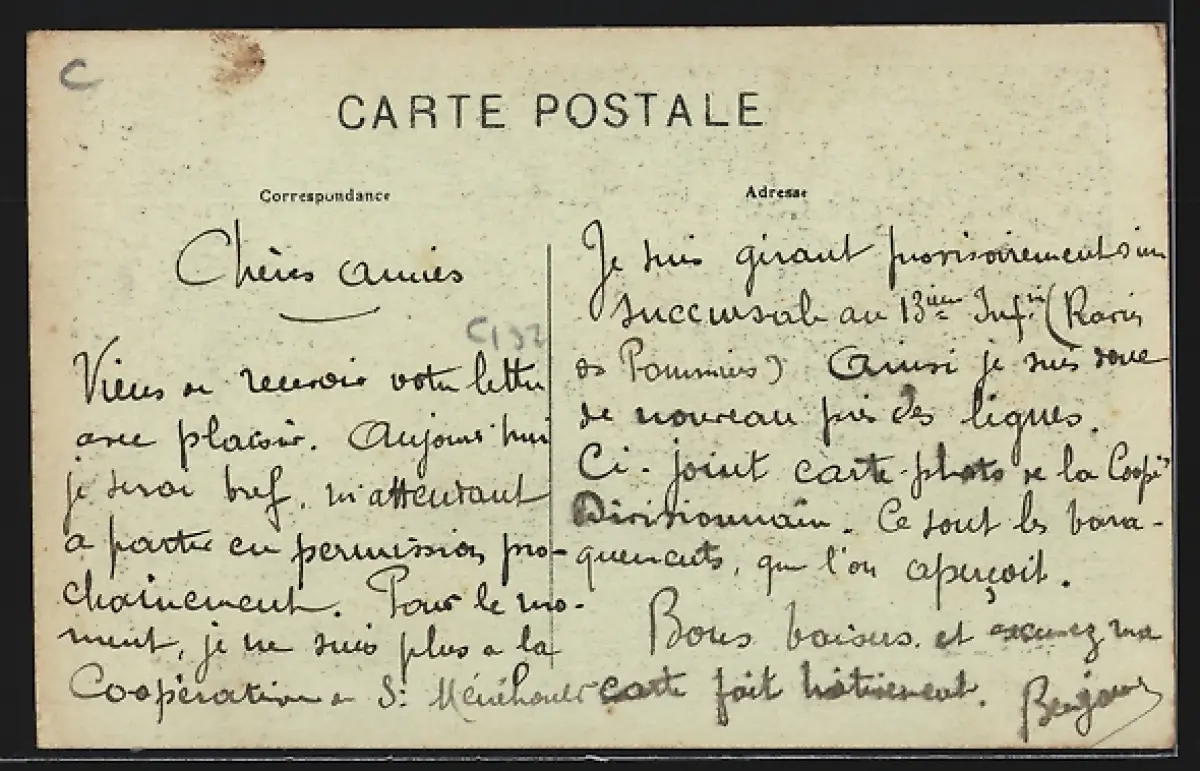 C
CARTE POSTALE
Correspondance
Chères amies
C132
Viens de recevoir votre lettre
avec plaisir. Aujourd'hui
je serai bref, m'attendant
a partir en permission pro-
chainement. Pour le mo-
ment, je ne suis plus a la
Coopération de St Ménéhould
Adresse
Je suis gérant provisoirement d'un
succursale au 13ième Inf.rie (Ravin
des Pommiers) Ainsi je suis donc
de nouveau près des lignes.
Ci-joint carte-photo de la Coopé
Divisionnaire. Ce sont les bara-
quements, que l'on aperçoit.
Bons baisers et excusez ma
carte fait hâtivement. Benjamin